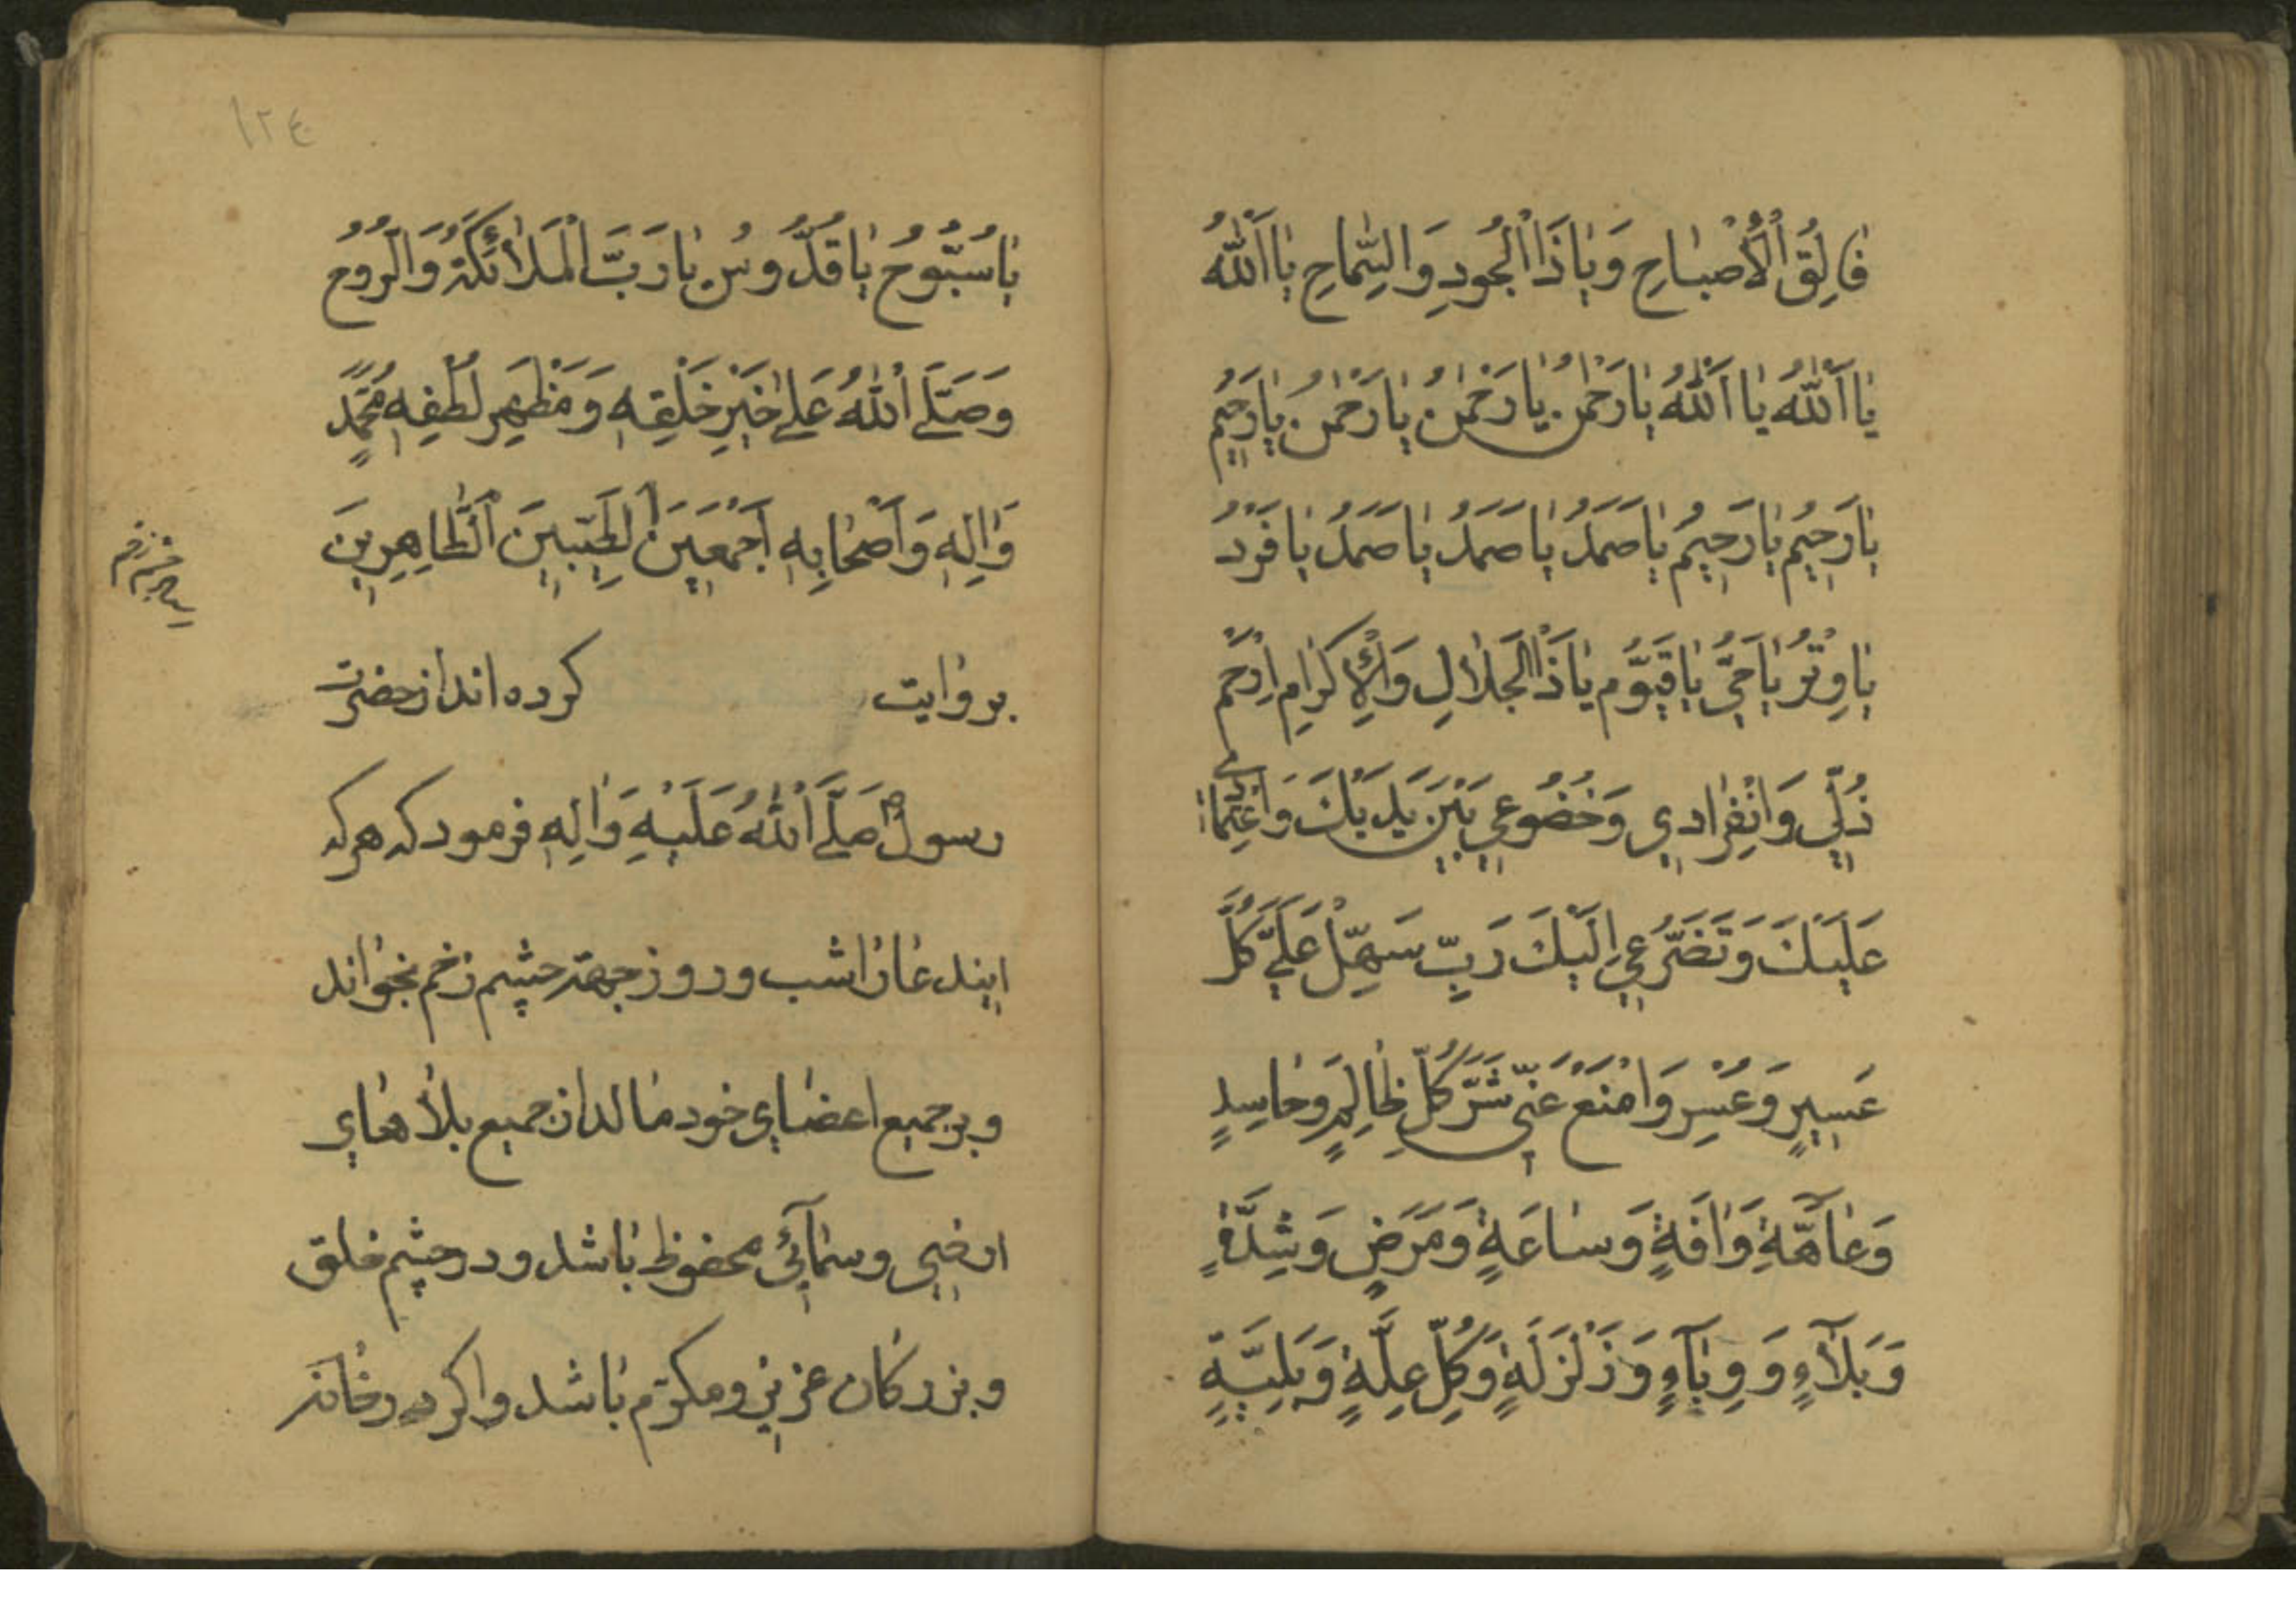 فَالِقُ الْأَصْبَاحِ وَيَا ذَا الْجُودِ وَالسَّمَاحِ يَا اَللّٰهُ
يَا اَللّٰهُ يَا اَللّٰهُ يَا رَحْمٰنُ يَا رَحْمٰنُ يَا رَحْمٰنُ يَا رَحِيمُ
يَا رَحِيمُ يَا رَحِيمُ يَا صَمَدُ يَا صَمَدُ يَا صَمَدُ يَا فَرْدُ
يَا وِتْرُ يَا حَيُّ يَا قَيُّومُ يَا ذَا الْجَلَالِ وَالْإِكْرَامِ اِرْحَمْ
ذُلِّي وَانْفِرَادِي وَخُضُوعِي بَيْنَ يَدَيْكَ وَاعْتِمَادِي
عَلَيْكَ وَتَضَرُّعِي اِلَيْكَ رَبِّ سَهِّلْ عَلَيَّ كُلَّ
عَسِيرٍ وَعُسْرٍ وَامْنَعْ عَنِّي شَرَّ كُلِّ ظَالِمٍ وَحَاسِدٍ
وَعَاهَةٍ وَاٰفَةٍ وَسَاعَةٍ وَمَرَضٍ وَشِدَّةٍ
وَبَلَآءٍ وَوِبَآءٍ وَزَلْزَلَةٍ وَكُلِّ عِلَّةٍ وَبَلِيَّةٍ
١٢٤
يَا سُبُّوحُ يَا قُدُّوسُ يَا رَبَّ الْمَلَائِكَةِ وَالرُّوحِ
وَصَلَّى اللّٰهُ عَلٰى خَيْرِ خَلْقِهِ وَمَظْهَرِ لُطْفِهِ مُحَمَّدٍ
وَاٰلِهِ وَاَصْحَابِهِ اَجْمَعِينَ الطَّيِّبِينَ الطَّاهِرِينَ
بروايت كرده اند از حضرت
رسول صَلَّى اللّٰهُ عَلَيْهِ وَاٰلِهِ فرمود كه هر كه
ايندعا را شب و روز جهة چشم زخم بخواند
و بر جميع اعضاي خود مالد از جميع بلاهاي
ارضي و سمآئي محفوظ باشد و در چشم خلق
و بزركان عزيز و مكرّم باشد و اكر در خانه